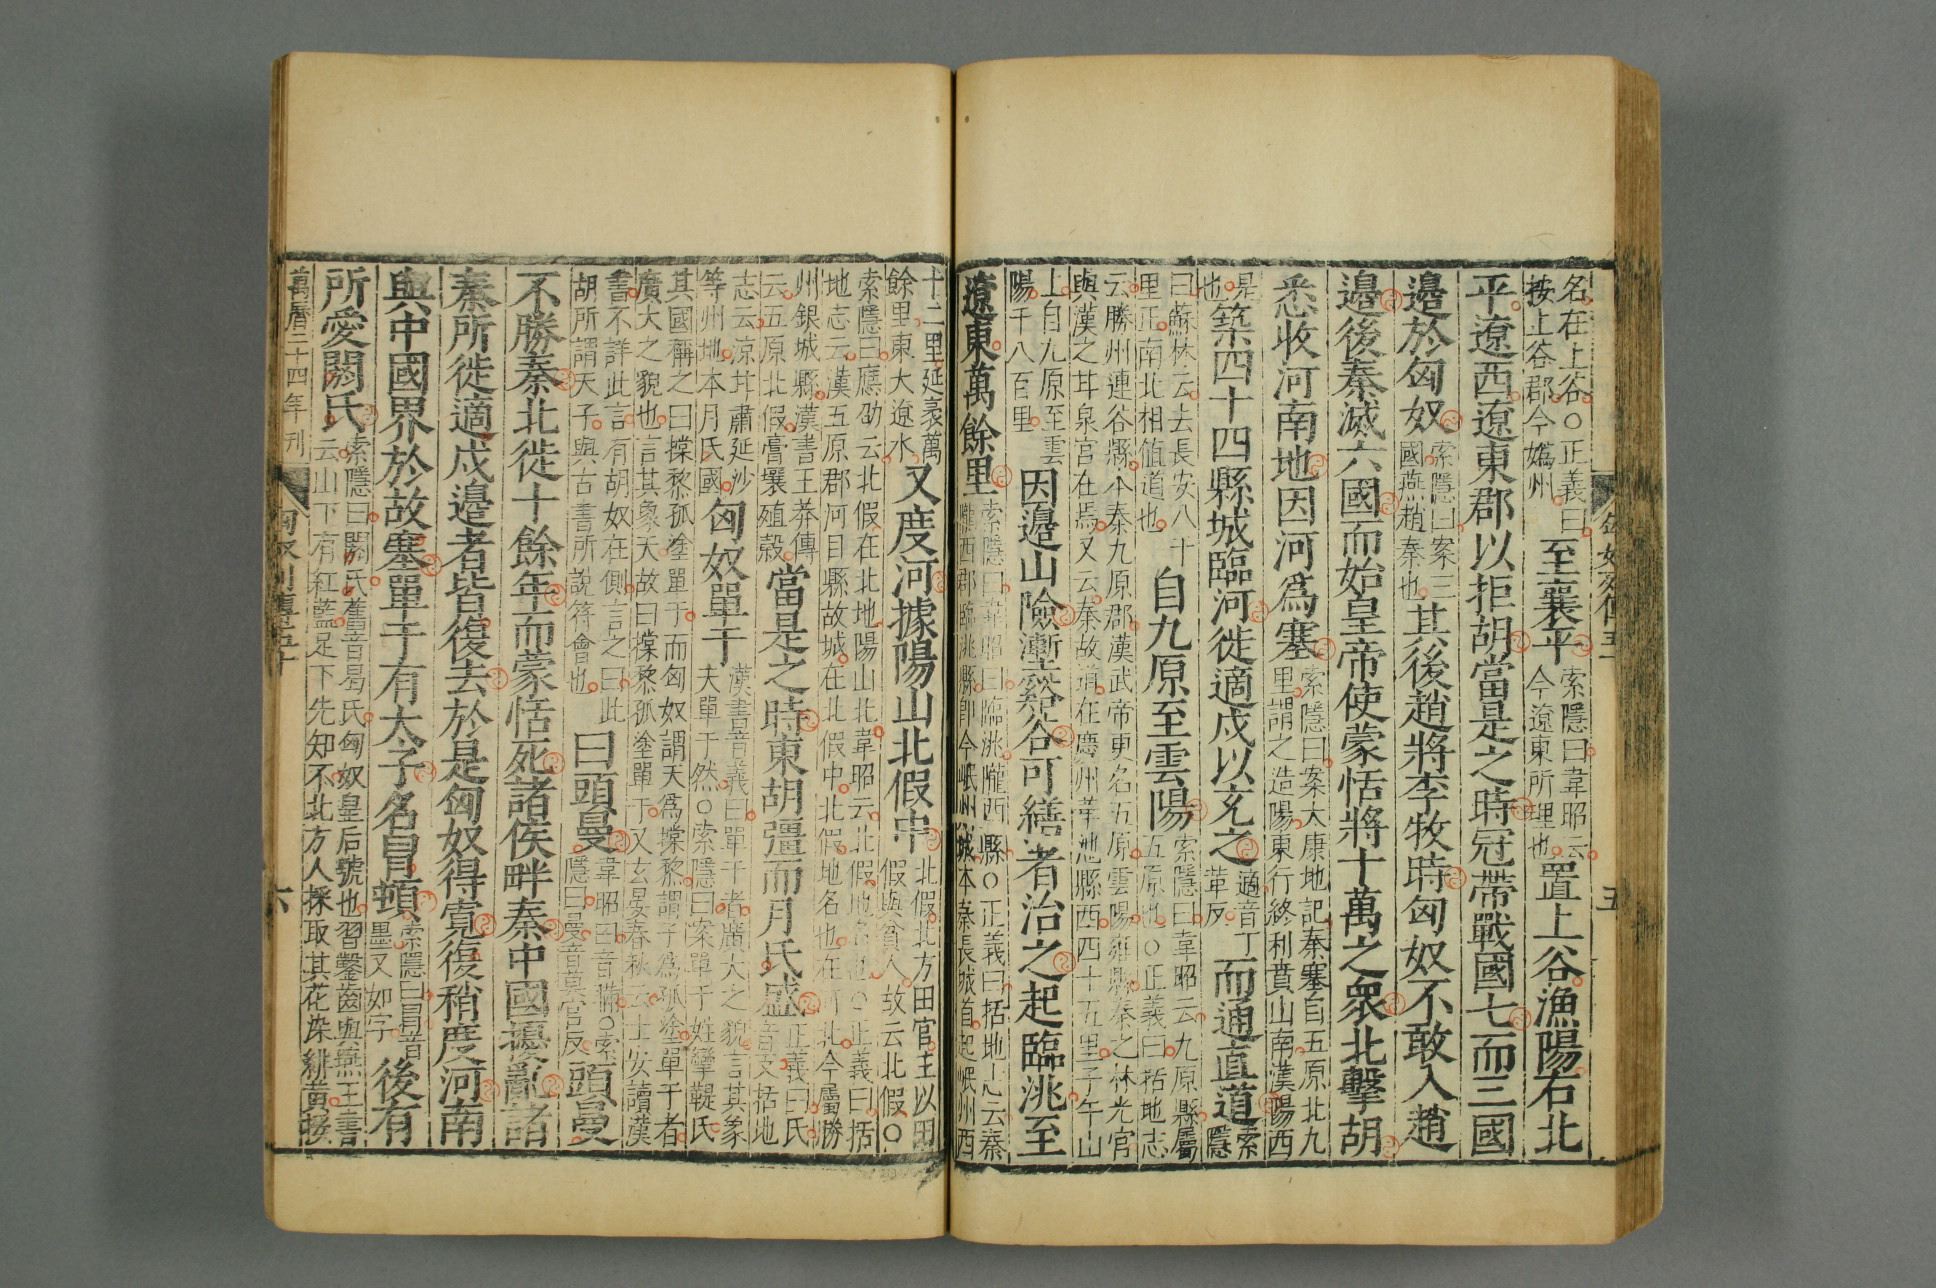 名在上谷○正義曰
按上谷郡今媯州
至襄平
索隱曰韋昭云
今遼東所理也
置上谷漁陽右北
平遼西遼東郡以拒胡當是之時冠帶戰國七而三國
邊於匈奴
索隱曰案三
國燕趙秦也
其後趙將李牧時匈奴不敢入趙
邊後秦滅六國而始皇帝使蒙恬將十萬之眾北擊胡
悉收河南地因河爲塞
索隱曰案大康地記秦塞自五原北九
里謂之造陽東行終利賁山南漢陽西
是
也
築四十四縣城臨河徙適戍以充之
適音丁
革反
而通直道
索
隱
曰蘇林云去長安八十
里正南北相値道也
自九原至雲陽
索隱曰韋昭云九原縣屬
五原也○正義曰括地志
云勝州連谷縣本秦九原郡漢武帝更名五原雲陽雍縣秦之林光宮
與漢之甘泉宮在焉又云秦故道在慶州華池縣西四十五里子午山
上自九原至雲
陽千八百里
因邊山險壍谿谷可繕者治之起臨洮至
遼東萬餘里
索隱曰韋昭曰臨洮隴西縣○正義曰括地志云秦
隴西郡臨洮縣即今岷州城本秦長城首起岷州西
五
十二里延袤萬
餘里東入遼水
又度河據陽山北假中
北假北方田官主以田
假與貧人故云北假○
索隱曰應劭云北假在北地陽山北韋昭云北假地名也○正義曰括
地志云漢五原郡河目縣故城在北假中北假地名也在河北今屬勝
州銀城縣漢書王莽傳
云五原北假膏壤殖穀
當是之時東胡彊而月氏盛
正義曰氏
音支括地
志云涼甘肅延沙
等州地本月氏國
匈奴單于
漢書音義曰單于者廣大之貌言其象
天單于然○索隱曰案單于姓攣鞮氏
其國稱之曰撐黎孤塗單于而匈奴謂天爲撐黎謂子爲孤塗單于者
廣大之貌也言其象天故曰撐黎孤塗單于又玄晏春秋云士安讀漢
書不詳此言有胡奴在側言之曰此
胡所謂天子與古書所說符會也
曰頭曼
韋昭曰音瞞○索
隱曰曼音莫官反
頭曼
不勝秦北徙十餘年而蒙恬死諸侯畔秦中國擾亂諸
秦所徙適戍邊者皆復去於是匈奴得寬復稍度河南
與中國界於故塞單于有太子名冒頓
索隱曰冒音
墨又如字
後有
所愛閼氏
索隱曰閼氏舊音曷氏匈奴皇后號也習鑿齒與燕王書
云山下有紅藍足下先知不北方人採取其花染緋黃挼
萬曆二十四年刊
匈奴列傳五十
六